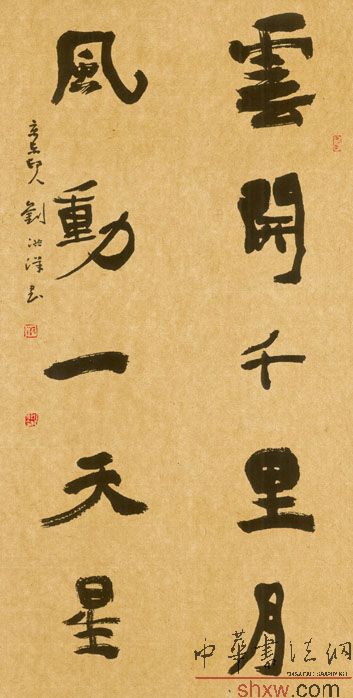 雲開千里月
風動一天星
印人 劉洪洋書
中華書法網
shxw.com